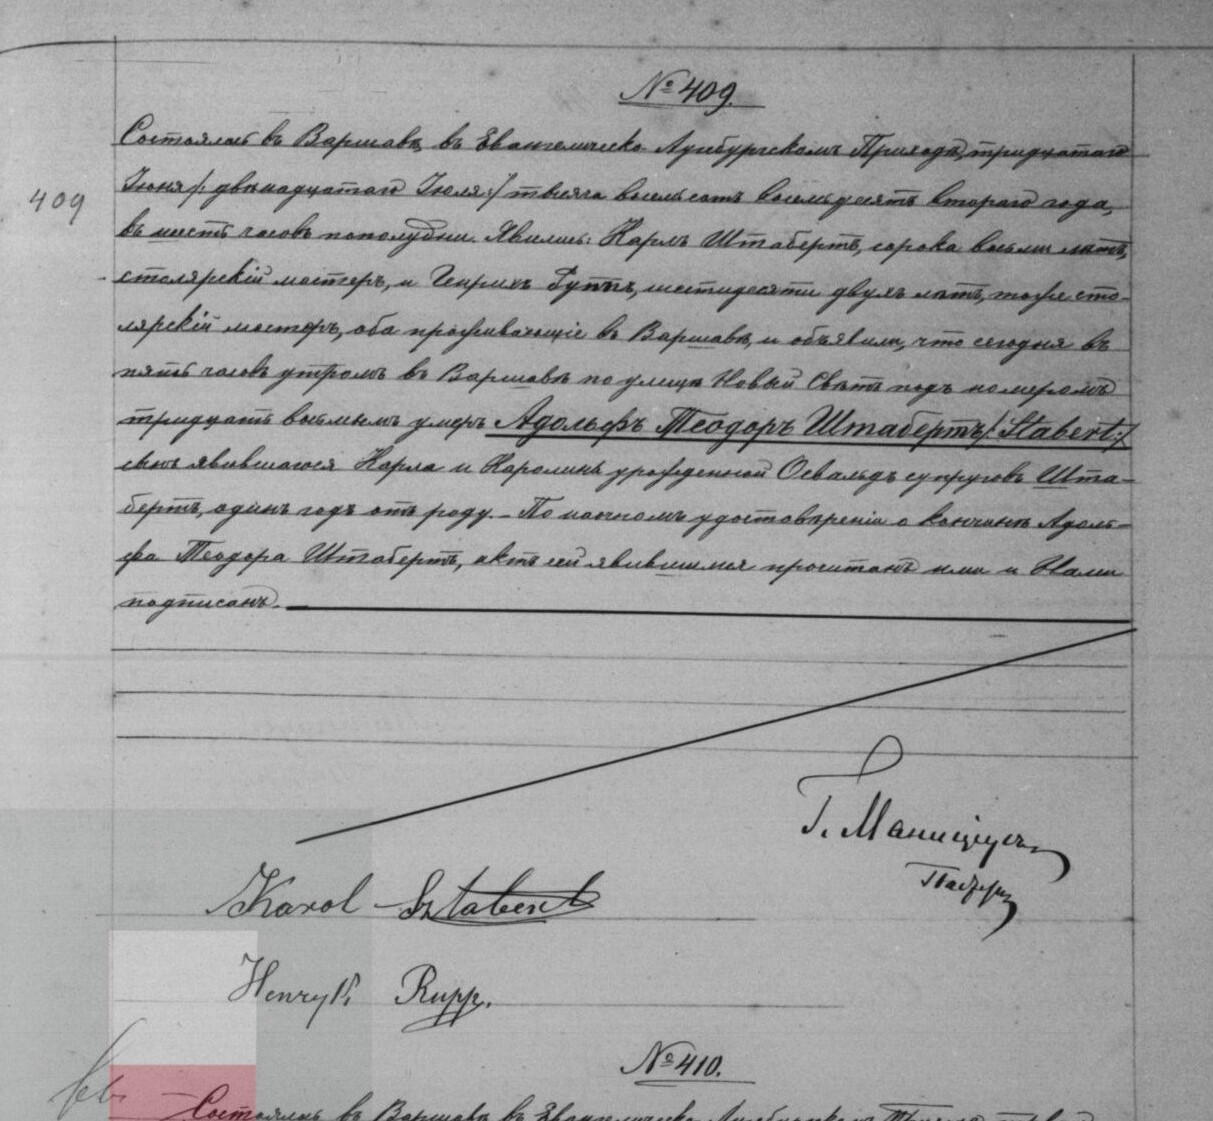 № 409.
Состоялось въ Варшавѣ, въ Евангелическо Аугсбургскомъ Приходѣ, тридцатаго
409
Іюня /: двѣнадцатаго Іюля :/ тысяча восемьсотъ восемьдесятъ втораго года,
въ шесть часовъ пополудни. Явились: Карлъ Штабертъ, сорока восьми лѣтъ,
столярскій мастеръ, и Генрихъ Руппъ, шестидесяти двухъ лѣтъ, тоже сто-
лярскій мастеръ, оба проживающіе въ Варшавѣ, и объявили, что сегодня въ
пять часовъ утромъ въ Варшавѣ по улицѣ Новый Свѣтъ подъ номеромъ
тридцать восьмымъ умеръ Адольфъ Теодоръ Штабертъ /: Stabert :/
сынъ явившагося Карла и Каролины урожденной Освальдъ супруговъ Шта-
бертъ, одинъ годъ отъ роду. - По наочномъ удостовѣреніи о кончинѣ Адоль-
фа Теодора Штабертъ, актъ сей явившимся прочитанъ ими и Нами
подписанъ.
Г. Маниціусъ
Пасторъ
Karol Sztabert
Henryk Rupp.
№ 410.
Состоялось въ Варшавѣ въ Евангелическо Аугсбургскомъ